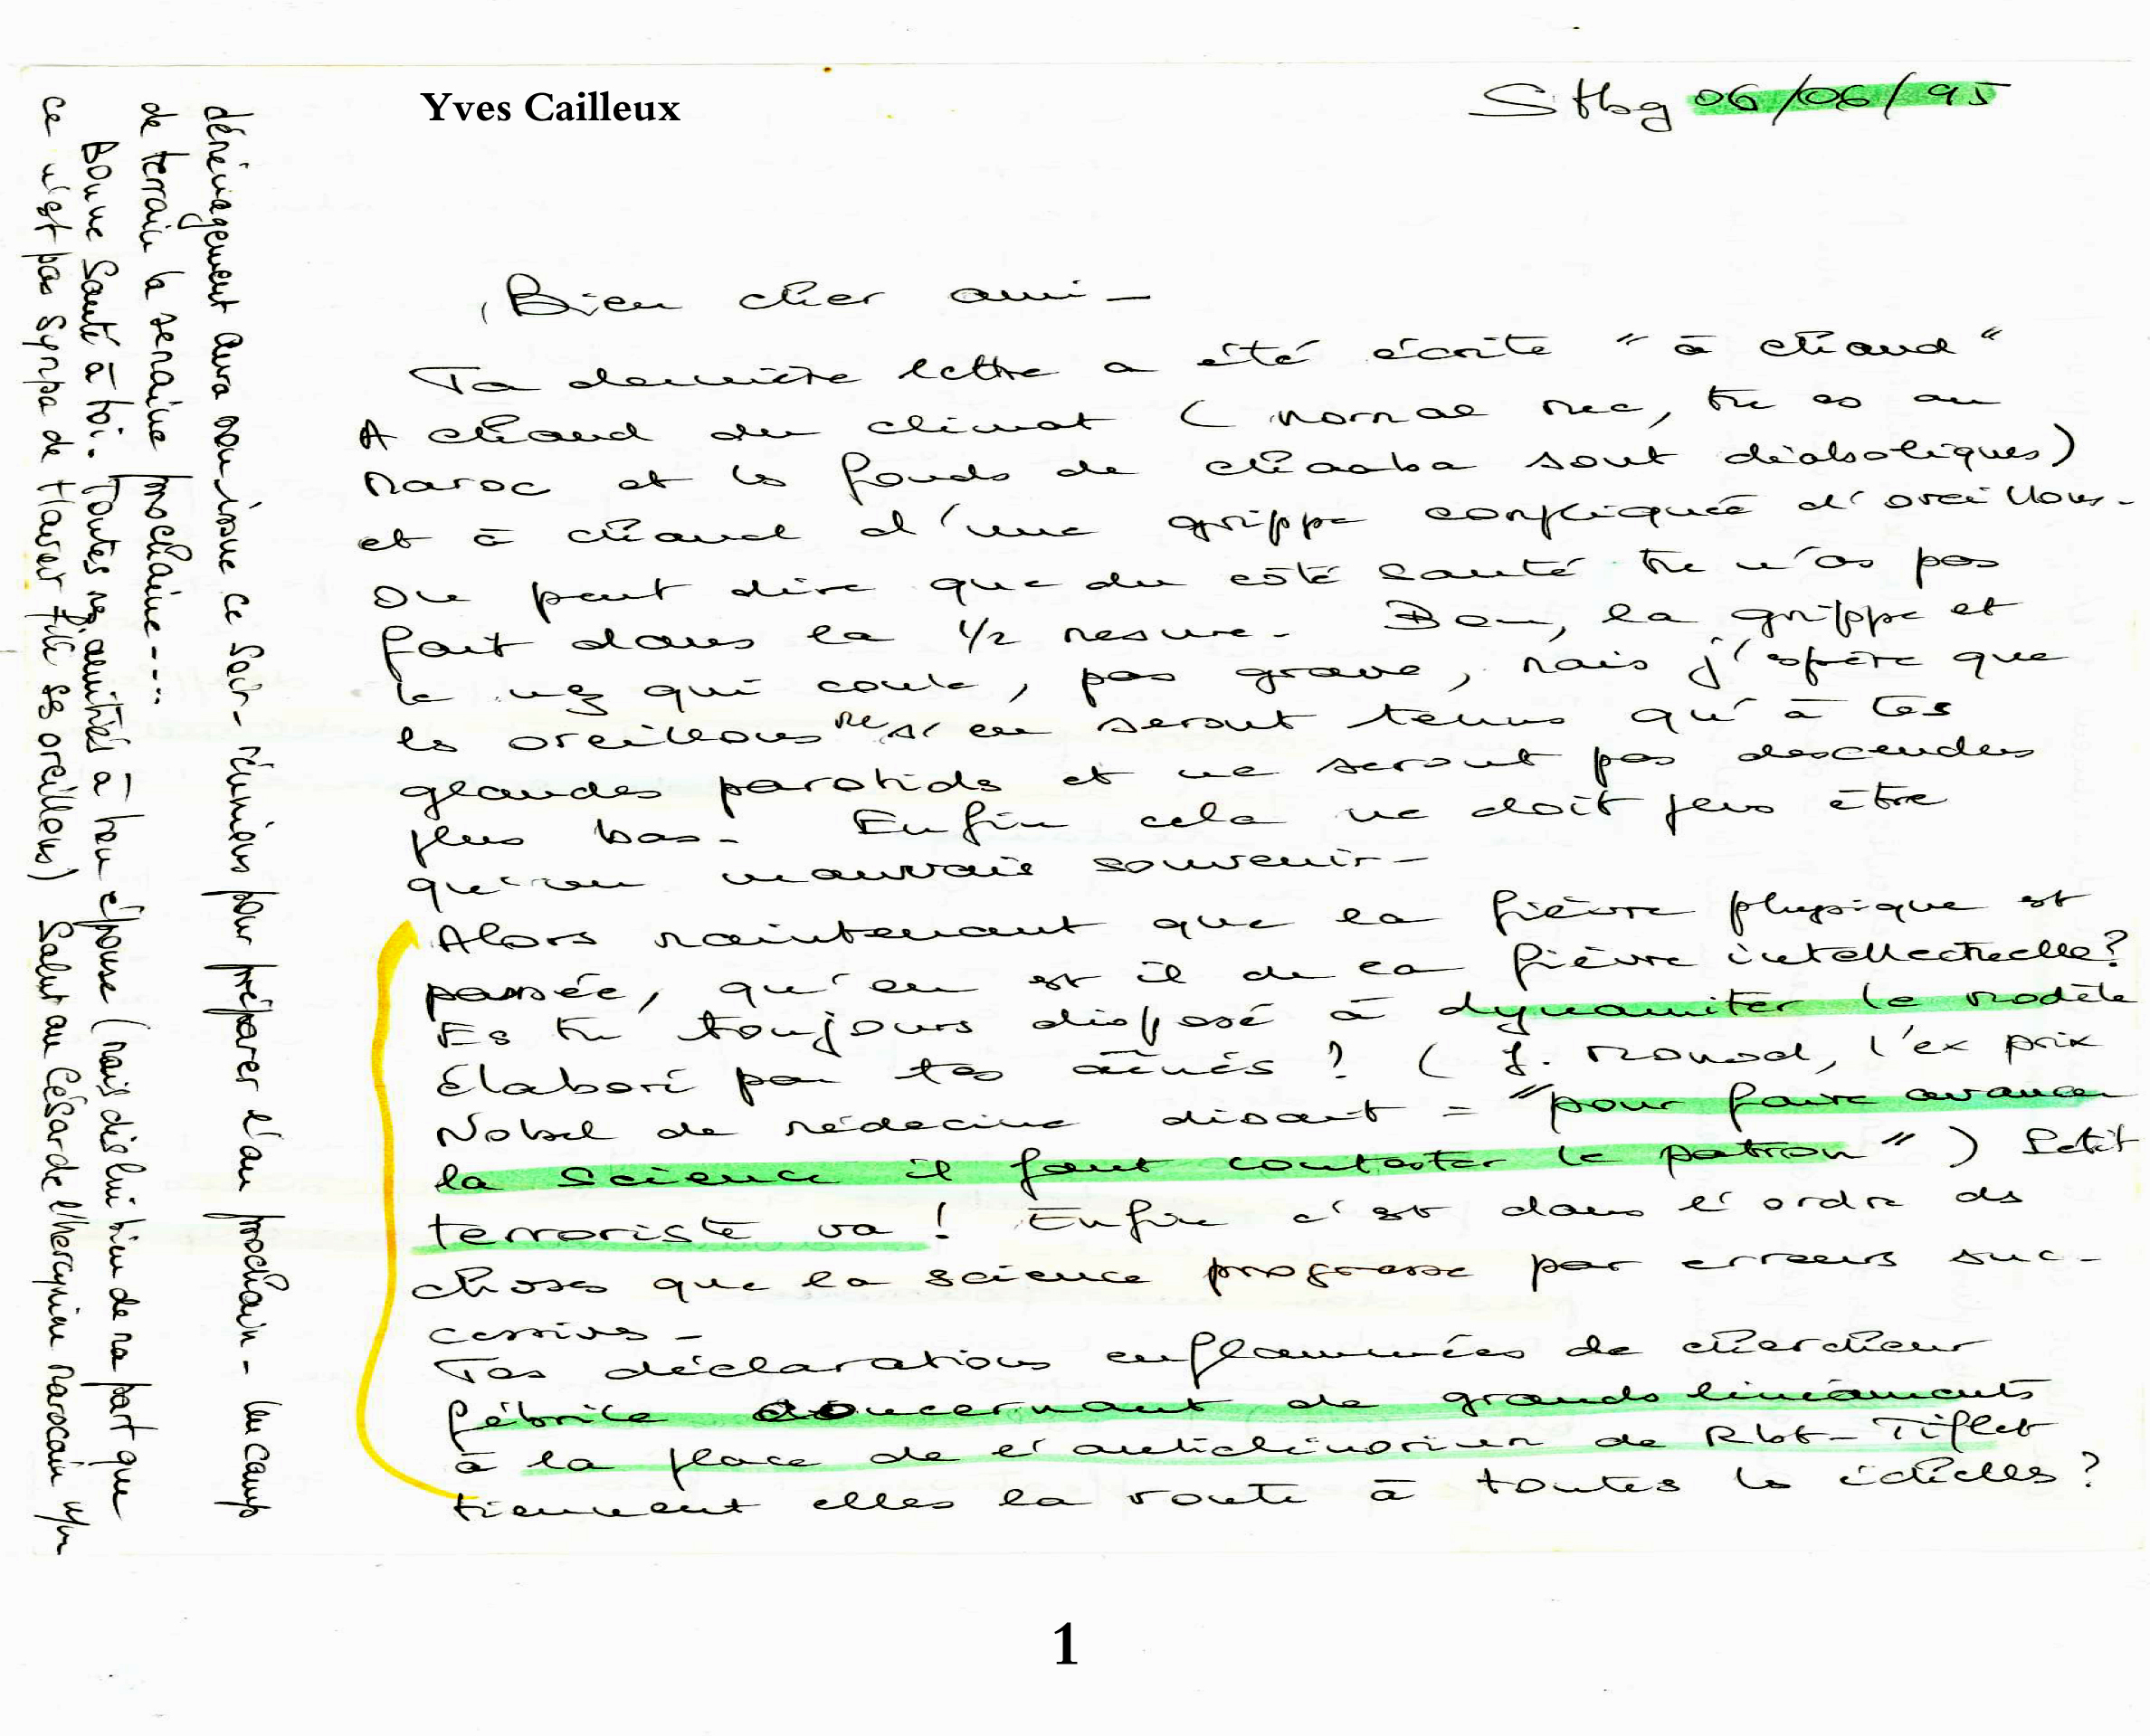 Yves Cailleux
Stbg 06/06/95
Bien cher ami -
Ta dernière lettre a été écrite " à chaud "
A chaud du climat ( normal mec, tu es au
Maroc et les fonds de chaaba sont diaboliques)
et à chaud d'une grippe compliquée d'oreillons.
On peut dire que du côté santé tu n'as pas
fait dans la 1/2 mesure - Bon, la grippe et
le nez qui coule, pas grave, mais j'espère que
les oreillons ne s'en seront tenus qu'à tes
glandes parotides et ne seront pas descendus
plus bas - Enfin cela ne doit plus être
qu'un mauvais souvenir -
Alors maintenant que la fièvre physique est
passée, qu'en est il de la fièvre intellectuelle?
Es tu toujours disposé à dynamiter le modèle
élaboré par tes aînés ? ( J. Monod, l'ex prix
Nobel de médecine disait = "pour faire avancer
la science il faut contester le patron" ) Petit
terroriste va ! Enfin c'est dans l'ordre des
choses que la science progresse par erreurs suc-
cessives -
Tes déclarations enflammées de chercheur
fébrile concernant de grands linéaments
à la place de l'anticlinorium de Rbt-Tiflet
tiennent elles la route à toutes les échelles ?
déménagement aura son issue ce soir - réunions pour préparer l'an prochain - un camp
de terrain la semaine prochaine ----
Bonne santé à toi. Toutes mes amitiés à ton épouse ( mais dis lui bien de ma part que
ce n'est pas sympa de t'avoir filé ses oreillons) Salut au César de l'hercynien marocain
1